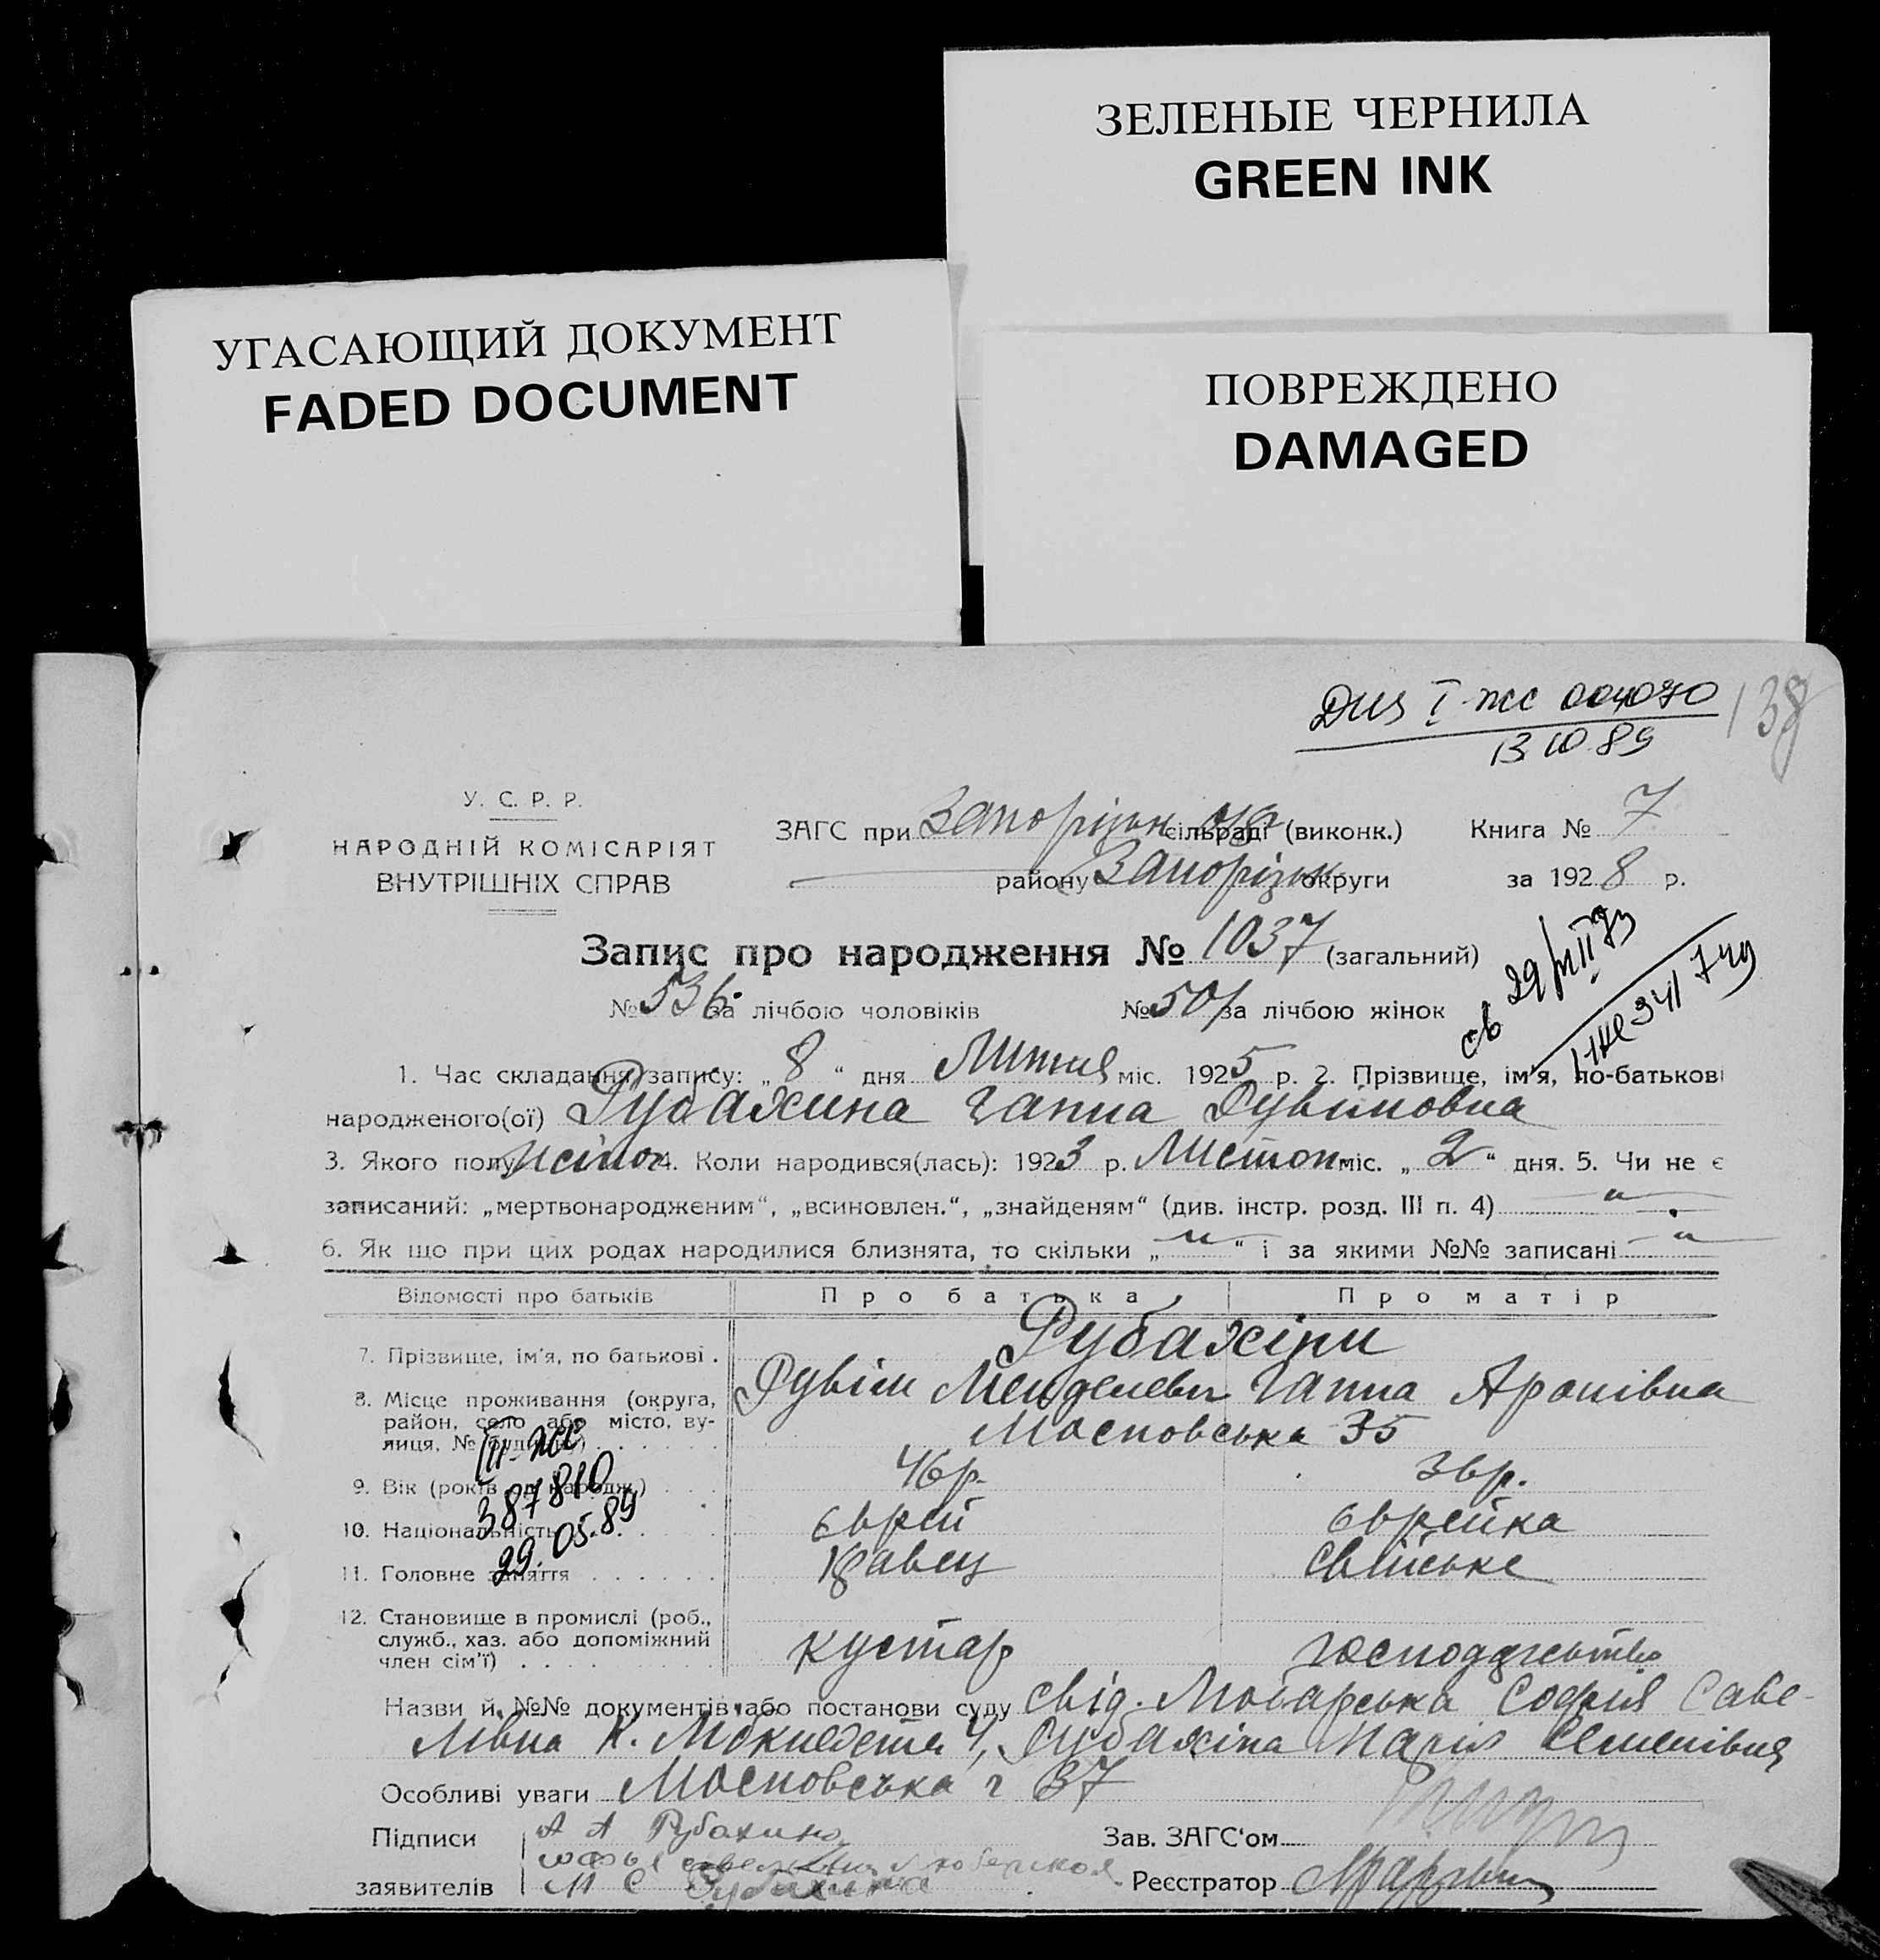 ЗЕЛЕНЫЕ ЧЕРНИЛА
GREEN INK
УГАСАЮЩИЙ ДОКУМЕНТ
FADED DOCUMENT
ПОВРЕЖДЕНО
DAMAGED
004070 138
13 10.89
У. С. Р. Р.
НАРОДНІЙ КОМІСАРІЯТ
ВНУТРІШНІХ СПРАВ
ЗАГС при Запорізьк сільраді (виконк.) Книга № 7
району Запорізьк округи за 1928 р.
Запис про народження № 1037 (загальний)
№ 536 за лічбою чоловіків № 501 за лічбою жінок
1. Час складання запису: „ 8 “ дня Липня міс. 1925 р. 2. Прізвище, ім'я, по-батькові
народженого(ої) Рубахина Ганна Рувимовна
3. Якого полу жіноч 4. Коли народився(лась): 1923 р. Листоп міс. „ 2 “ дня. 5. Чи не є
записаний: „мертвонародженим“, „всиновлен.“, „знайденям“ (див. інстр. розд. III п. 4)
6. Як що при цих родах народилися близнята, то скільки „ “ і за якими №№ записані
Відомості про батьків Про батька Про матір
Рубахіни
7. Прізвище, ім'я, по батькові .
Рувім Менделевич Ганна Аронівна
8. Місце проживання (округа,
район, село або місто, ву-
лиця, № будинку)
Московська 35
III-ЖС
387810
29.05.89
9. Вік (років од народж.) 46 р. 36 р.
10. Національність єврей єврейка
11. Головне заняття кравець свійське
12. Становище в промислі (роб.,
служб., хаз. або допоміжний
член сім'ї) кустар господарство
Назви й №№ документів або постанови суду свід. Софія Саве-
лівна К. 4, Рубахіна Марія Семенівна
Особливі уваги Московська 37
Підписи А А Рубахина Зав. ЗАГС'ом
заявителів М С Рубахина Реєстратор